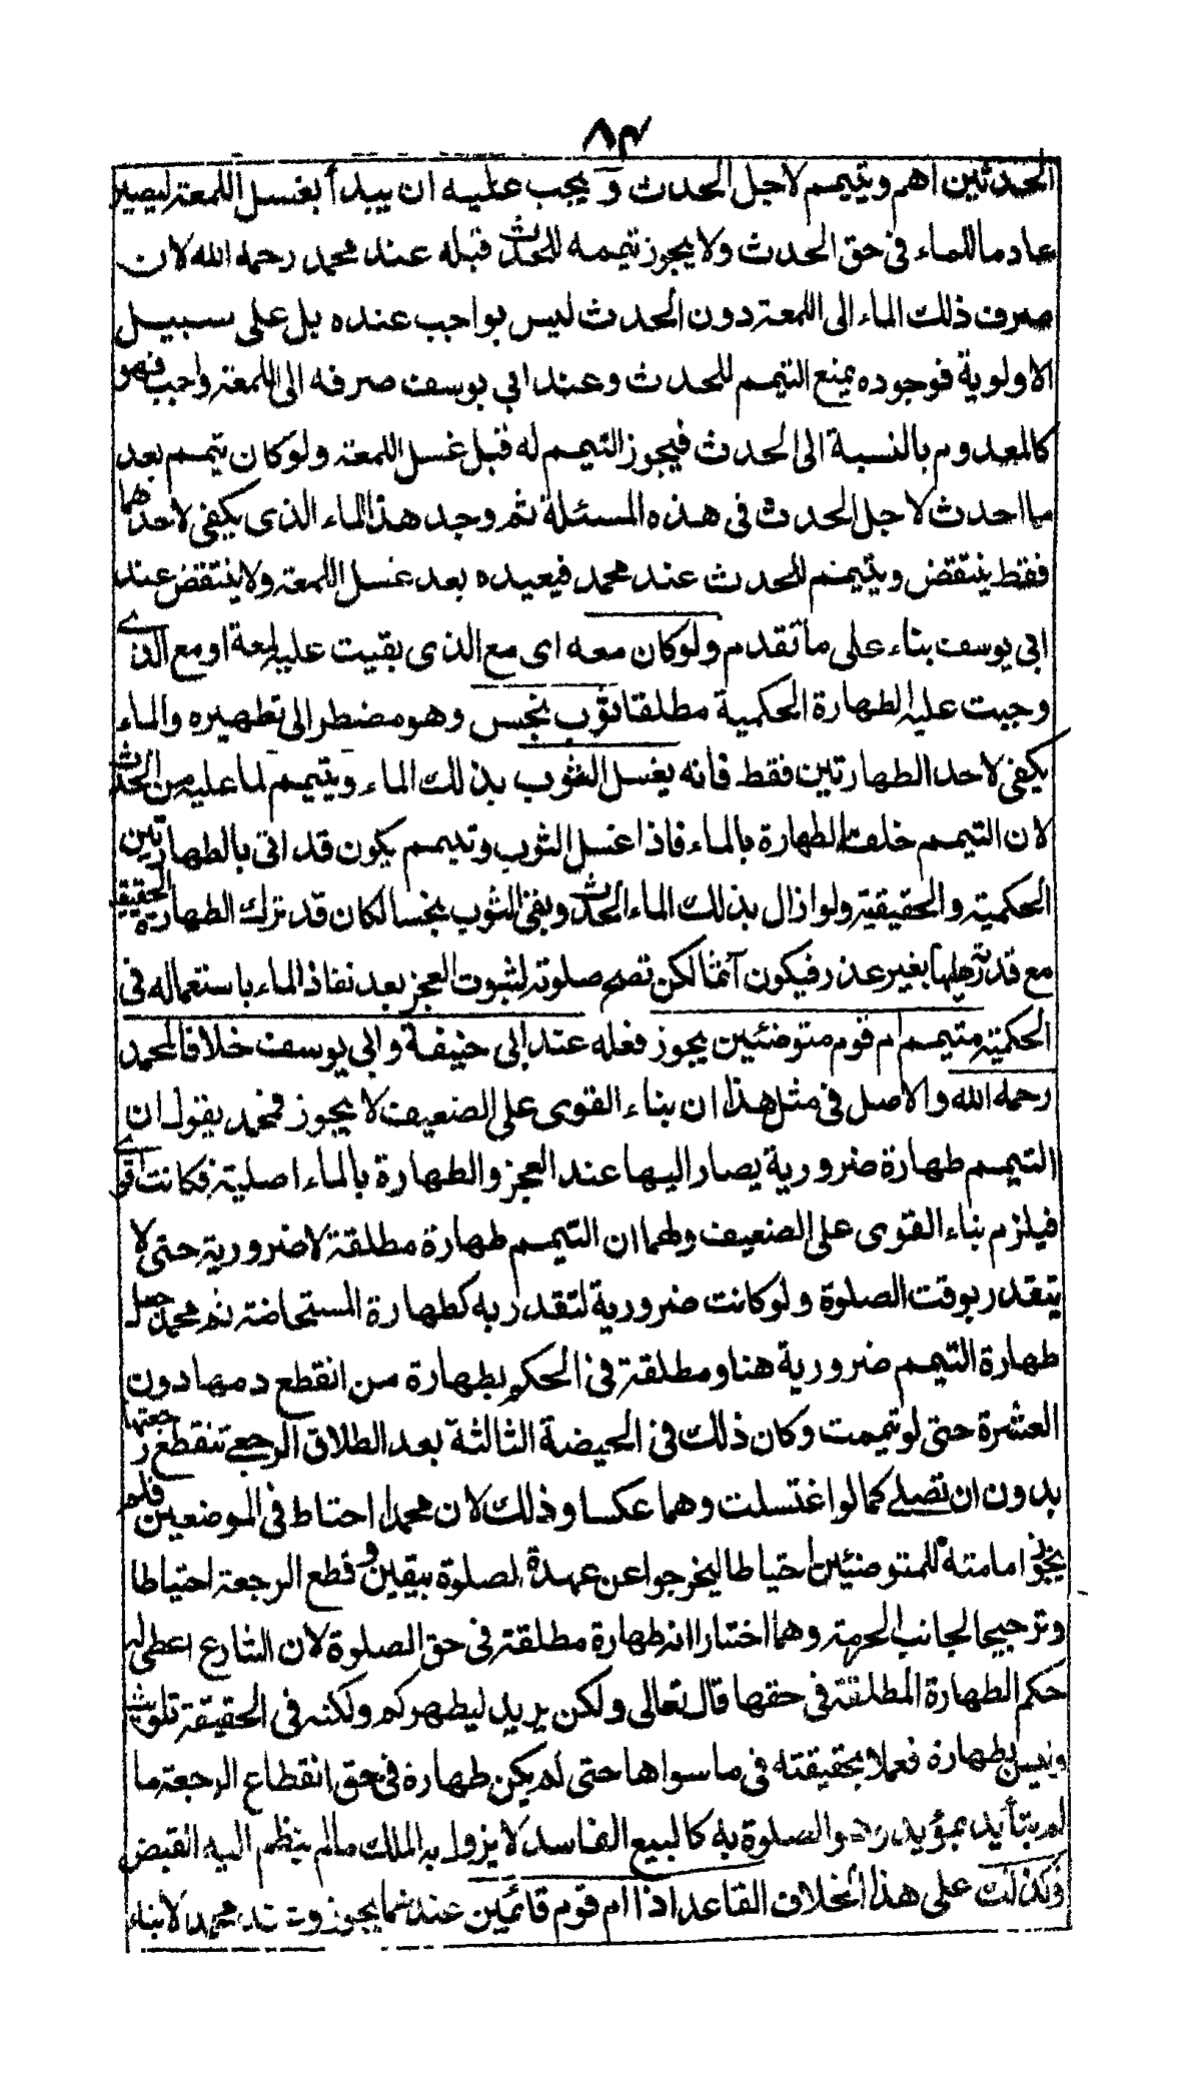 ٨٣
الحدثين اهم ويتيمم لاجل الحدث و يجب عليه ان يبدأ بغسل اللمعة ليصير
عادما للماء فى حق الحدث ولا يجوز تيممه للحدث قبله عند محمد رحمه الله لان
صرف ذلك الماء الى اللمعة دون الحدث ليس بواجب عنده بل على سبيل
الاولوية فوجوده يمنع التيمم للحدث وعند ابي يوسف صرفه الى اللمعة واجب فهو
كالمعدوم بالنسبة الى الحدث فيجوز التيمم له قبل غسل اللمعة ولو كان تيمم بعد
ما احدث لاجل الحدث فى هذه المسئلة ثم وجد هذا الماء الذى يكفى لاحدهما
فقط ينتقض ويتيمم للحدث عند محمد فيعيده بعد غسل اللمعة ولا ينتقض عند
ابي يوسف بناء على ما تقدم ولو كان معه اى مع الذى بقيت عليه لمعة او مع الذى
وجبت عليه الطهارة الحكمية مطلقا ثوب نجس وهو مضطر الى تطهيره والماء
يكفى لاحد الطهارتين فقط فانه يغسل الثوب بذلك الماء ويتيمم لما عليه من الحدث
لان التيمم خلف الطهارة بالماء فاذا غسل الثوب وتيمم يكون قد اتى بالطهارتين
الحكمية والحقيقية ولو ازال بذلك الماء الحدث وبقى الثوب نجسا لكان قد ترك الطهارة الحقيقية
مع قدرته عليها بغير عذر فيكون آثما لكن تصح صلوته لثبوت العجز بعد نفاذ الماء باستعماله فى
الحكمية متيمم ام قوم متوضئين يجوز فعله عند ابى حنيفة وابي يوسف خلافا لمحمد
رحمه الله والاصل فى مثل هذا ان بناء القوى على الضعيف لا يجوز فمحمد يقول ان
التيمم طهارة ضرورية يصار اليها عند العجز والطهارة بالماء اصلية فكانت اقوى
فيلزم بناء القوى على الضعيف ولهما ان التيمم طهارة مطلقة لا ضرورية حتى لا
يتقدر بوقت الصلوة ولو كانت ضرورية لتقدر به كطهارة المستحاضة ثم محمد جعل
طهارة التيمم ضرورية هنا ومطلقة فى الحكم بطهارة من انقطع دمها دون
العشرة حتى لو تيممت وكان ذلك فى الحيضة الثالثة بعد الطلاق الرجعى تنقطع رجعتها
بدون ان تصلى كما لو اغتسلت وهما عكسا وذلك لان محمدا احتاط فى الموضعين فلم
يجوز امامته للمتوضئين احتياطا ليخرجوا عن عهدة الصلوة بيقين و قطع الرجعة احتياطا
وترجيحا لجانب الحرمة وهما اختارا انه طهارة مطلقة فى حق الصلوة لان الشارع اعطى له
حكم الطهارة المطلقة فى حقها قال تعالى ولكن يريد ليطهركم ولكنه فى الحقيقة تلويث
وليس بطهارة فعملا بحقيقته فى ما سواها حتى لم يكن طهارة فى حق انقطاع الرجعة ما
لم يتأيد بمؤيد وهو الصلوة به كالبيع الفاسد لا يزول به الملك مالم ينظم اليه القبض
وكذلك على هذا الخلاف القاعد اذا ام قوم قائمين عندهما يجوز وعند محمد لا بناء